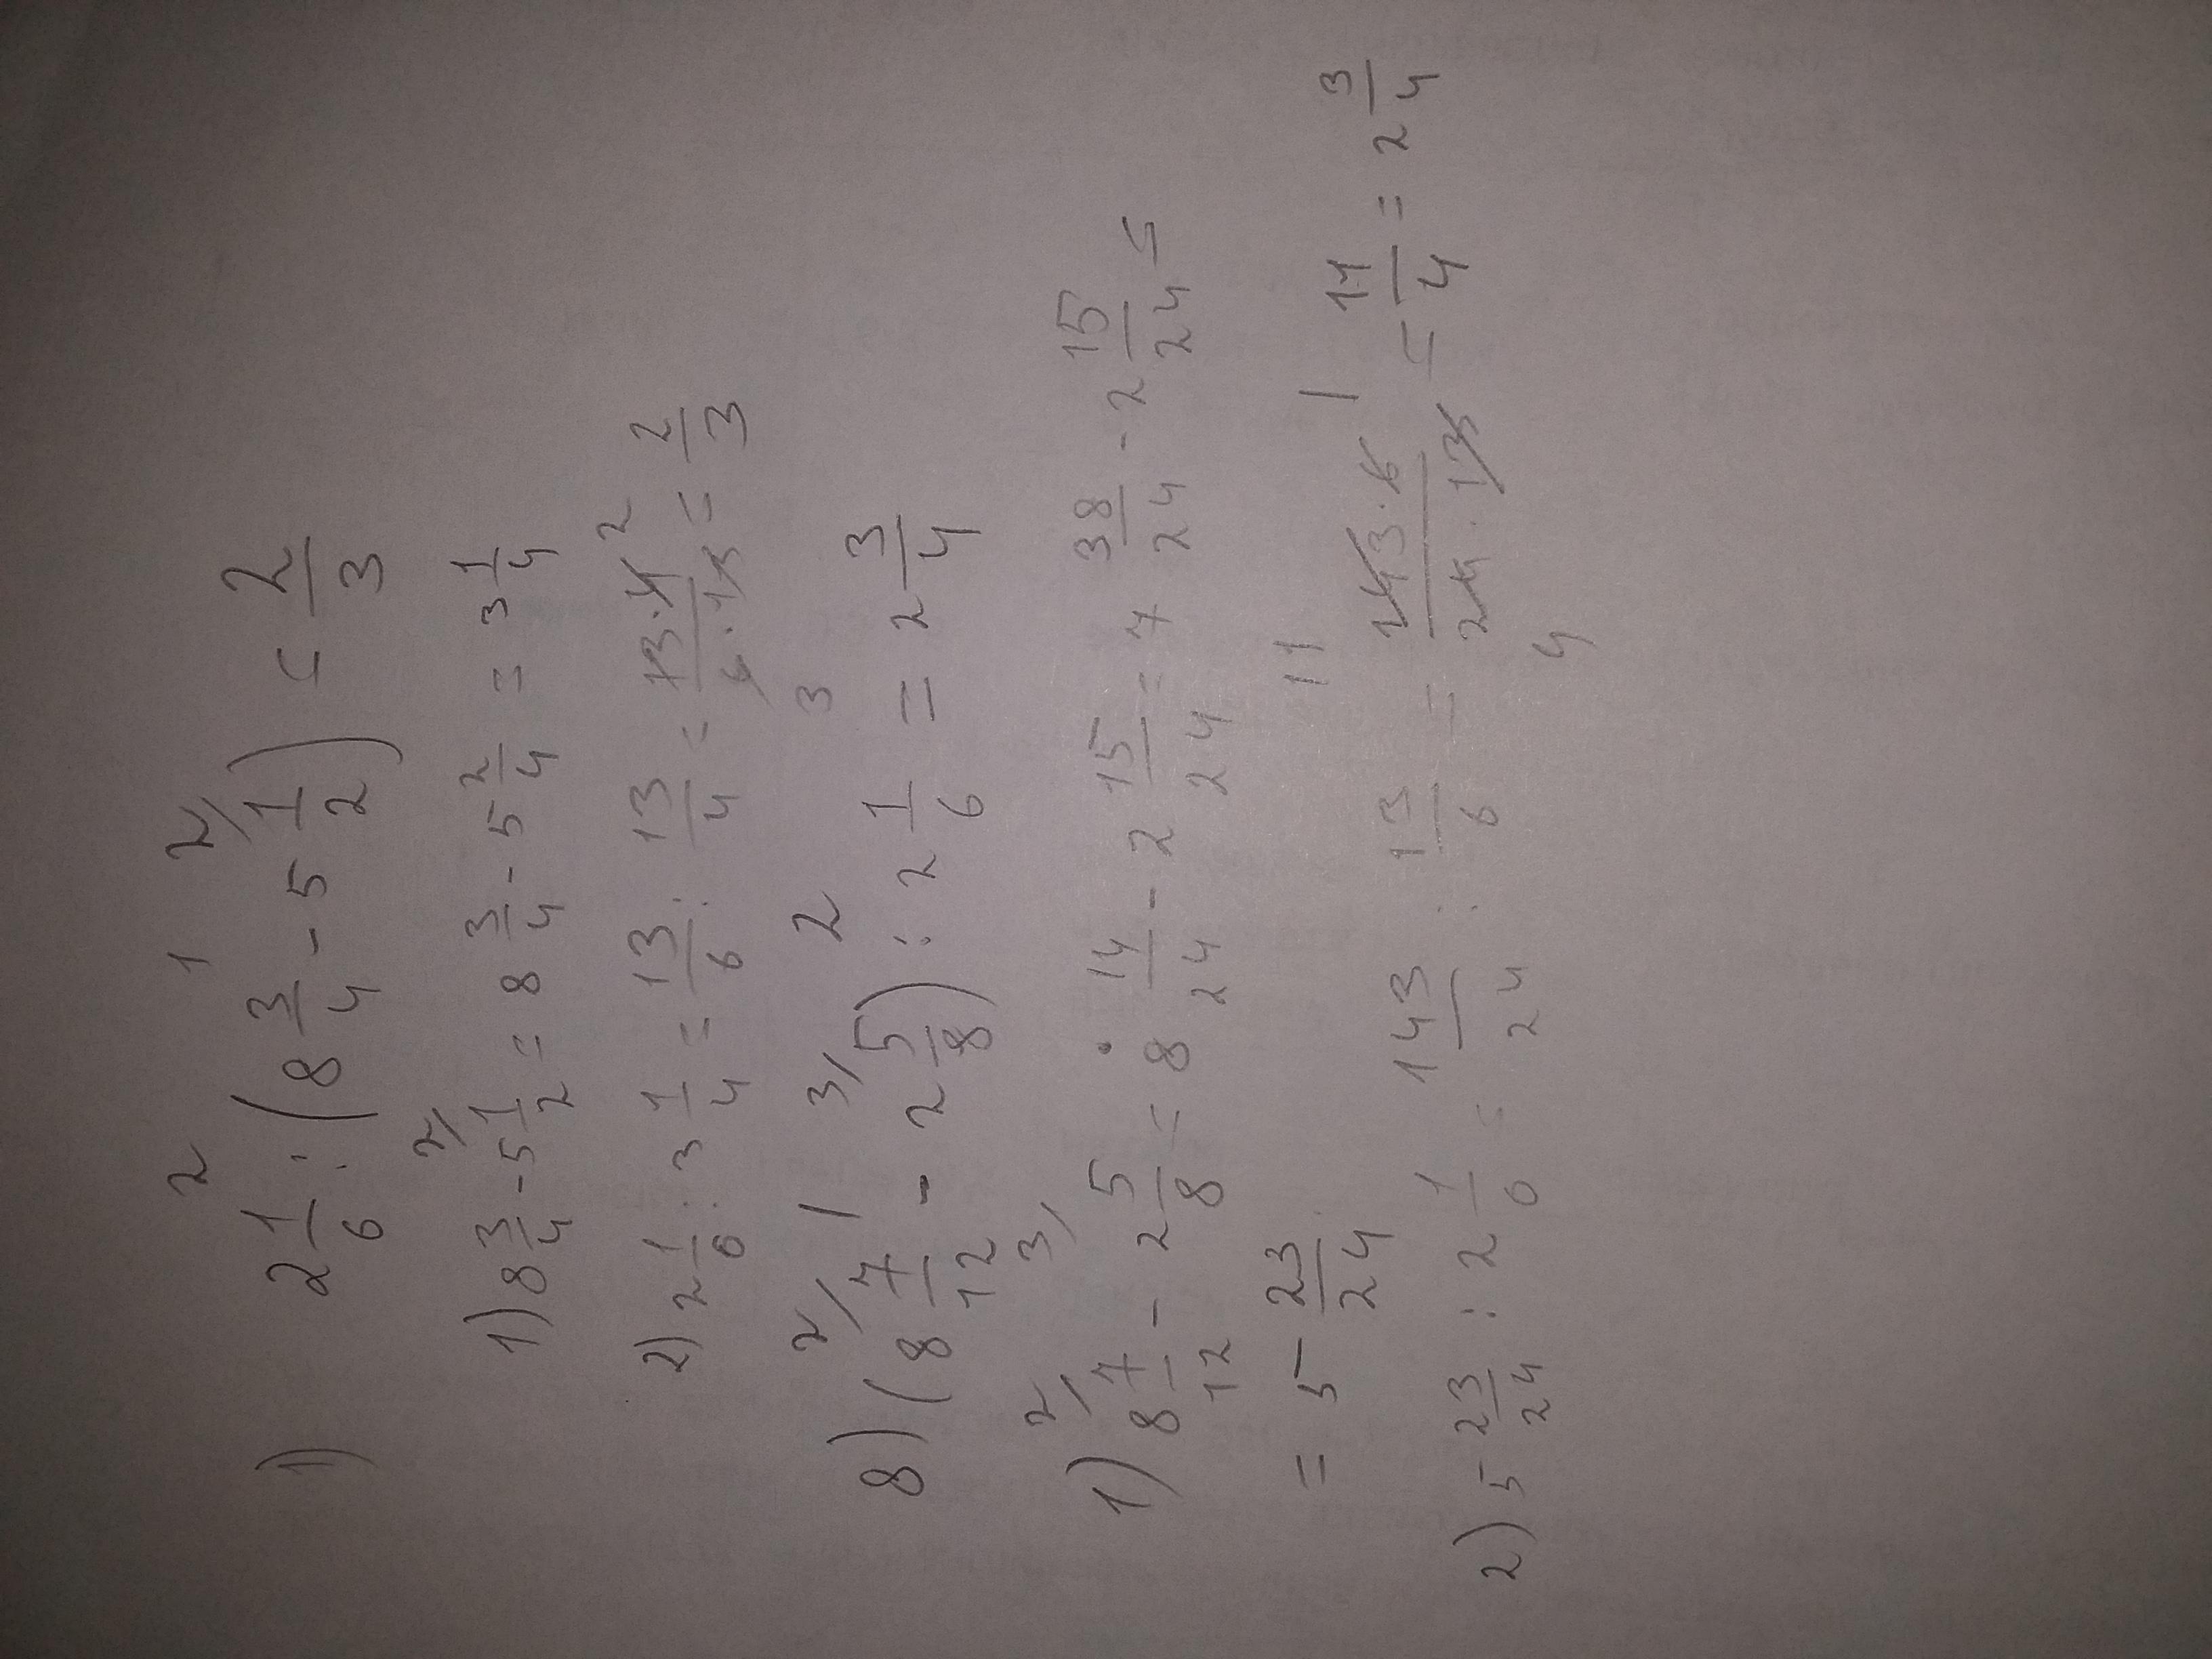 1) 2 1/6 : (8 3/4 - 5 1/2) = 2/3
1) 8 3/4 - 5 1/2 = 8 3/4 - 5 2/4 = 3 1/4
2) 2 1/6 : 3 1/4 = 13/6 : 13/4 = 13·4/6·13 = 2/3
8) (8 7/12 - 2 5/8) : 2 1/6 = 2 3/4
1) 8 7/12 - 2 5/8 = 8 14/24 - 2 15/24 = 7 38/24 - 2 15/24 =
= 5 23/24
2) 5 23/24 : 2 1/6 = 143/24 : 13/6 = 143·6/24·13 = 11/4 = 2 3/4